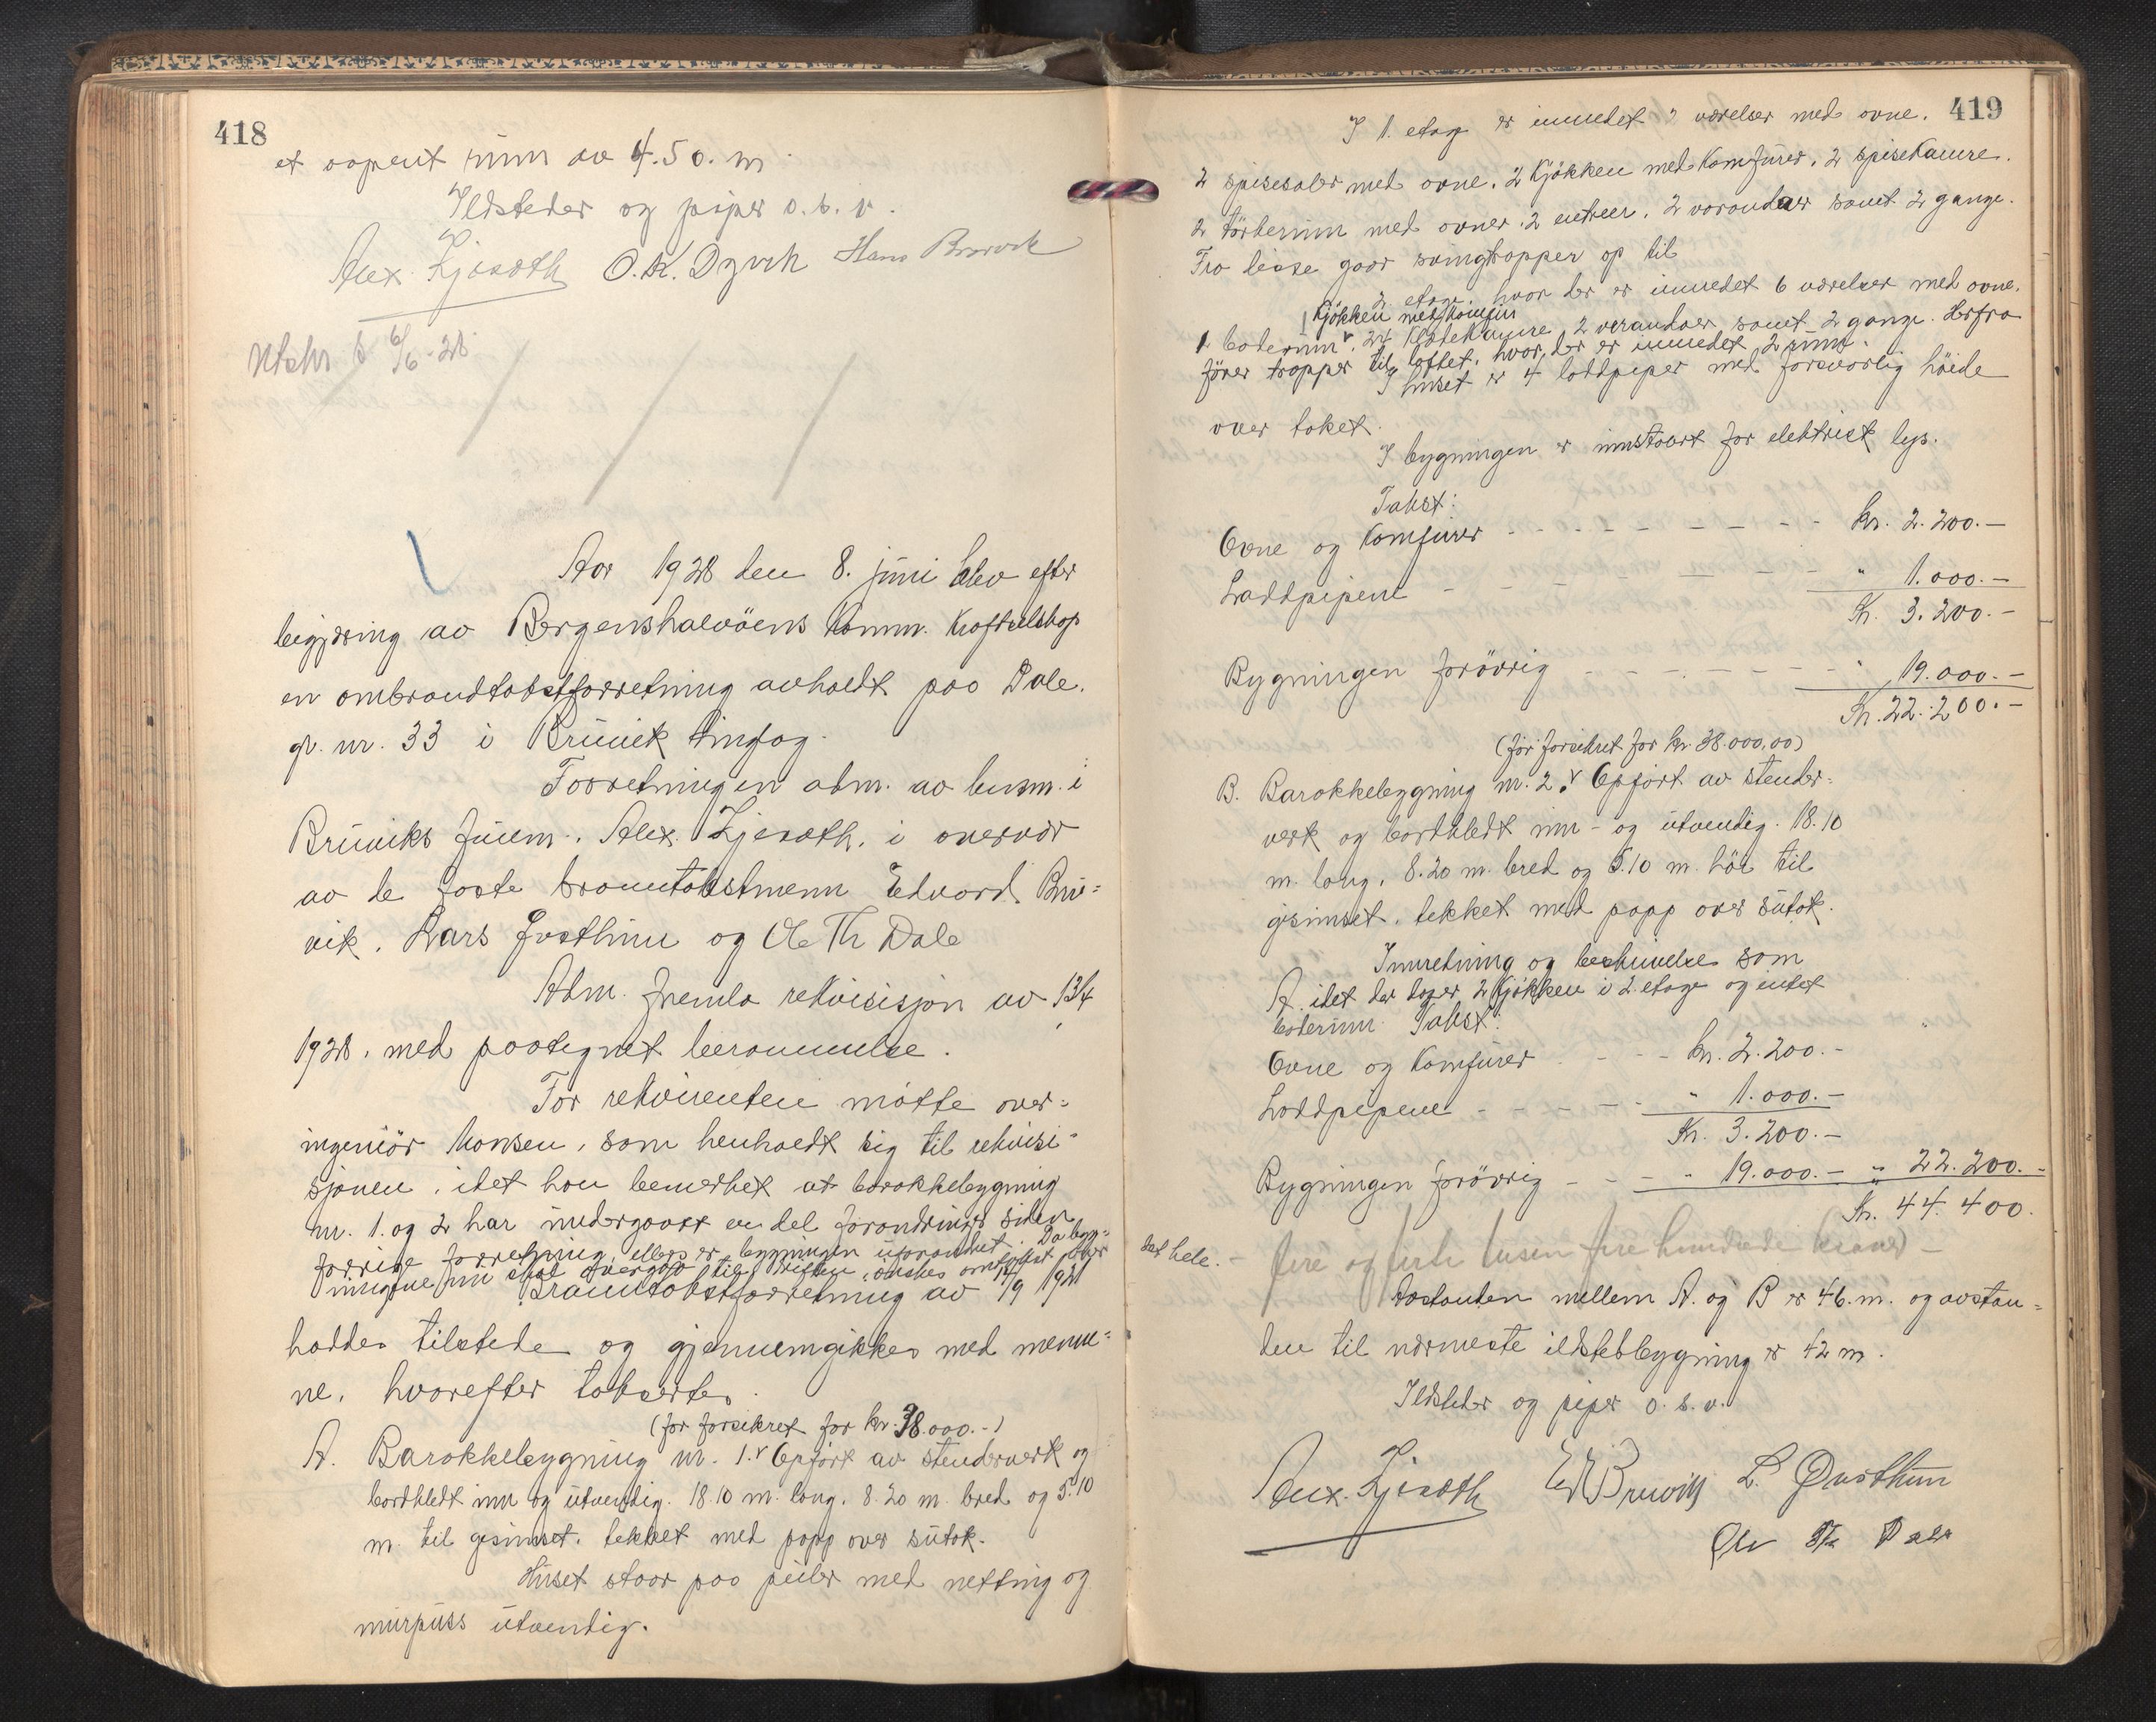 418
et aapent rum av 4.50. m.
Ildsteder og piper o. s. v.
Alex. Kjesæth O. K. Dyvik Hans Brørvik
Utskr. 6/6-28
Aar 1928 den 8. juni blev efter
begjæring av Bergenshalvöens Komm. Kraftselskap
en ombrandtakstforretning avholdt paa Dale,
gr. nr. 33 i Bruvik tinglag.
Forretningen adm. av lensm. i
Bruviks Alex. Kjesæth, i overvær
av de faste branntakstmenn Edvard Bru-
vik, Lars Gusthun og Ole Th Dale
Adm. fremla rekvisisjon av 13/4
1928, med paategnet berammelse.
For rekvirenten mötte over-
ingeniör Monsen, som henholdt sig til rekvisi-
sjonen, idet han bemerket at barakkebygning
nr. 1. og 2 har undergaatt en del forandringer siden
forrige forretning, ellers er bygningen uforandret. Da byg-
ningene nu skal overgaa til driften, önskes
Branntakstforretning av 14/9 1921
haddes tilstede og gjennemgikkes med menne-
ne, hvorefter takserte:
(för forsikret for kr. 38.000.-)
A. Barakkebygning nr. 1. Opfört av stenderverk og
bordkledt inn og utvendig. 18.10 m. lang, 8.20 m. bred og 5.10
m. til gesimset, tekket med papp over sutak.
Huset staar paa peiler med netting og
murpuss utvendig.
419
I 1. etage er innredet 2 værelser med ovne.
2 spisesaler med ovne, 2 Kjökken med Komfurer, 2 spisekamre.
2 törkerum med ovner, 2 entreer, 2 verandaer samt 2 gange.
Fra disse gaar svingtrapper op til
2 etage, hvor der er innredet 6 værelser med ovne.
1 Kjökken med Komfur
1 baderum, 24 Klædekamre, 2 verandaer samt 2 gange. Herfra
förer trapper til loftet, hvor der er innredet 2 rum.
I huset er 4 loddpiper med forsvarlig höide
over taket.
I bygningen er innstaert for elektrisk lys.
Takst:
Ovne og Komfurer - - - - kr. 2.200.-
Loddpipene - - - - " 1.000.-
Kr. 3.200.-
Bygningen forövrig - - - - " 19.000.-
Kr. 22.200.-
(för forsikret for kr. 38.000,00)
B. Barakkebygning nr. 2. Opfört av stender-
verk og bordkledt inn- og utvendig. 18.10
m. lang, 8.20 m. bred og 5.10 m. höi til
gesimset, tekket med papp over sutak.
Innredning og beskrivelse som
A. idet der dog er 2 Kjökken i 2. etage og intet
baderum. Takst:
Ovne og Komfurer - - - kr. 2.200.-
Loddpipene - - - - " 1.000.-
Kr. 3.200.-
Bygningen forövrig - - - " 19.000.- " 22.200.-
Kr. 44.400.
det hele. - fire og firti tusen fire hundrede kroner -
Avstanden mellem A. og B er 46. m. og avstan-
den til nærmeste ildstedbygning er 42 m.
Ildsteder og piper o. s. v.
Alex. Kjesæth E Bruvik L. Gusthun
Ole Th Dale